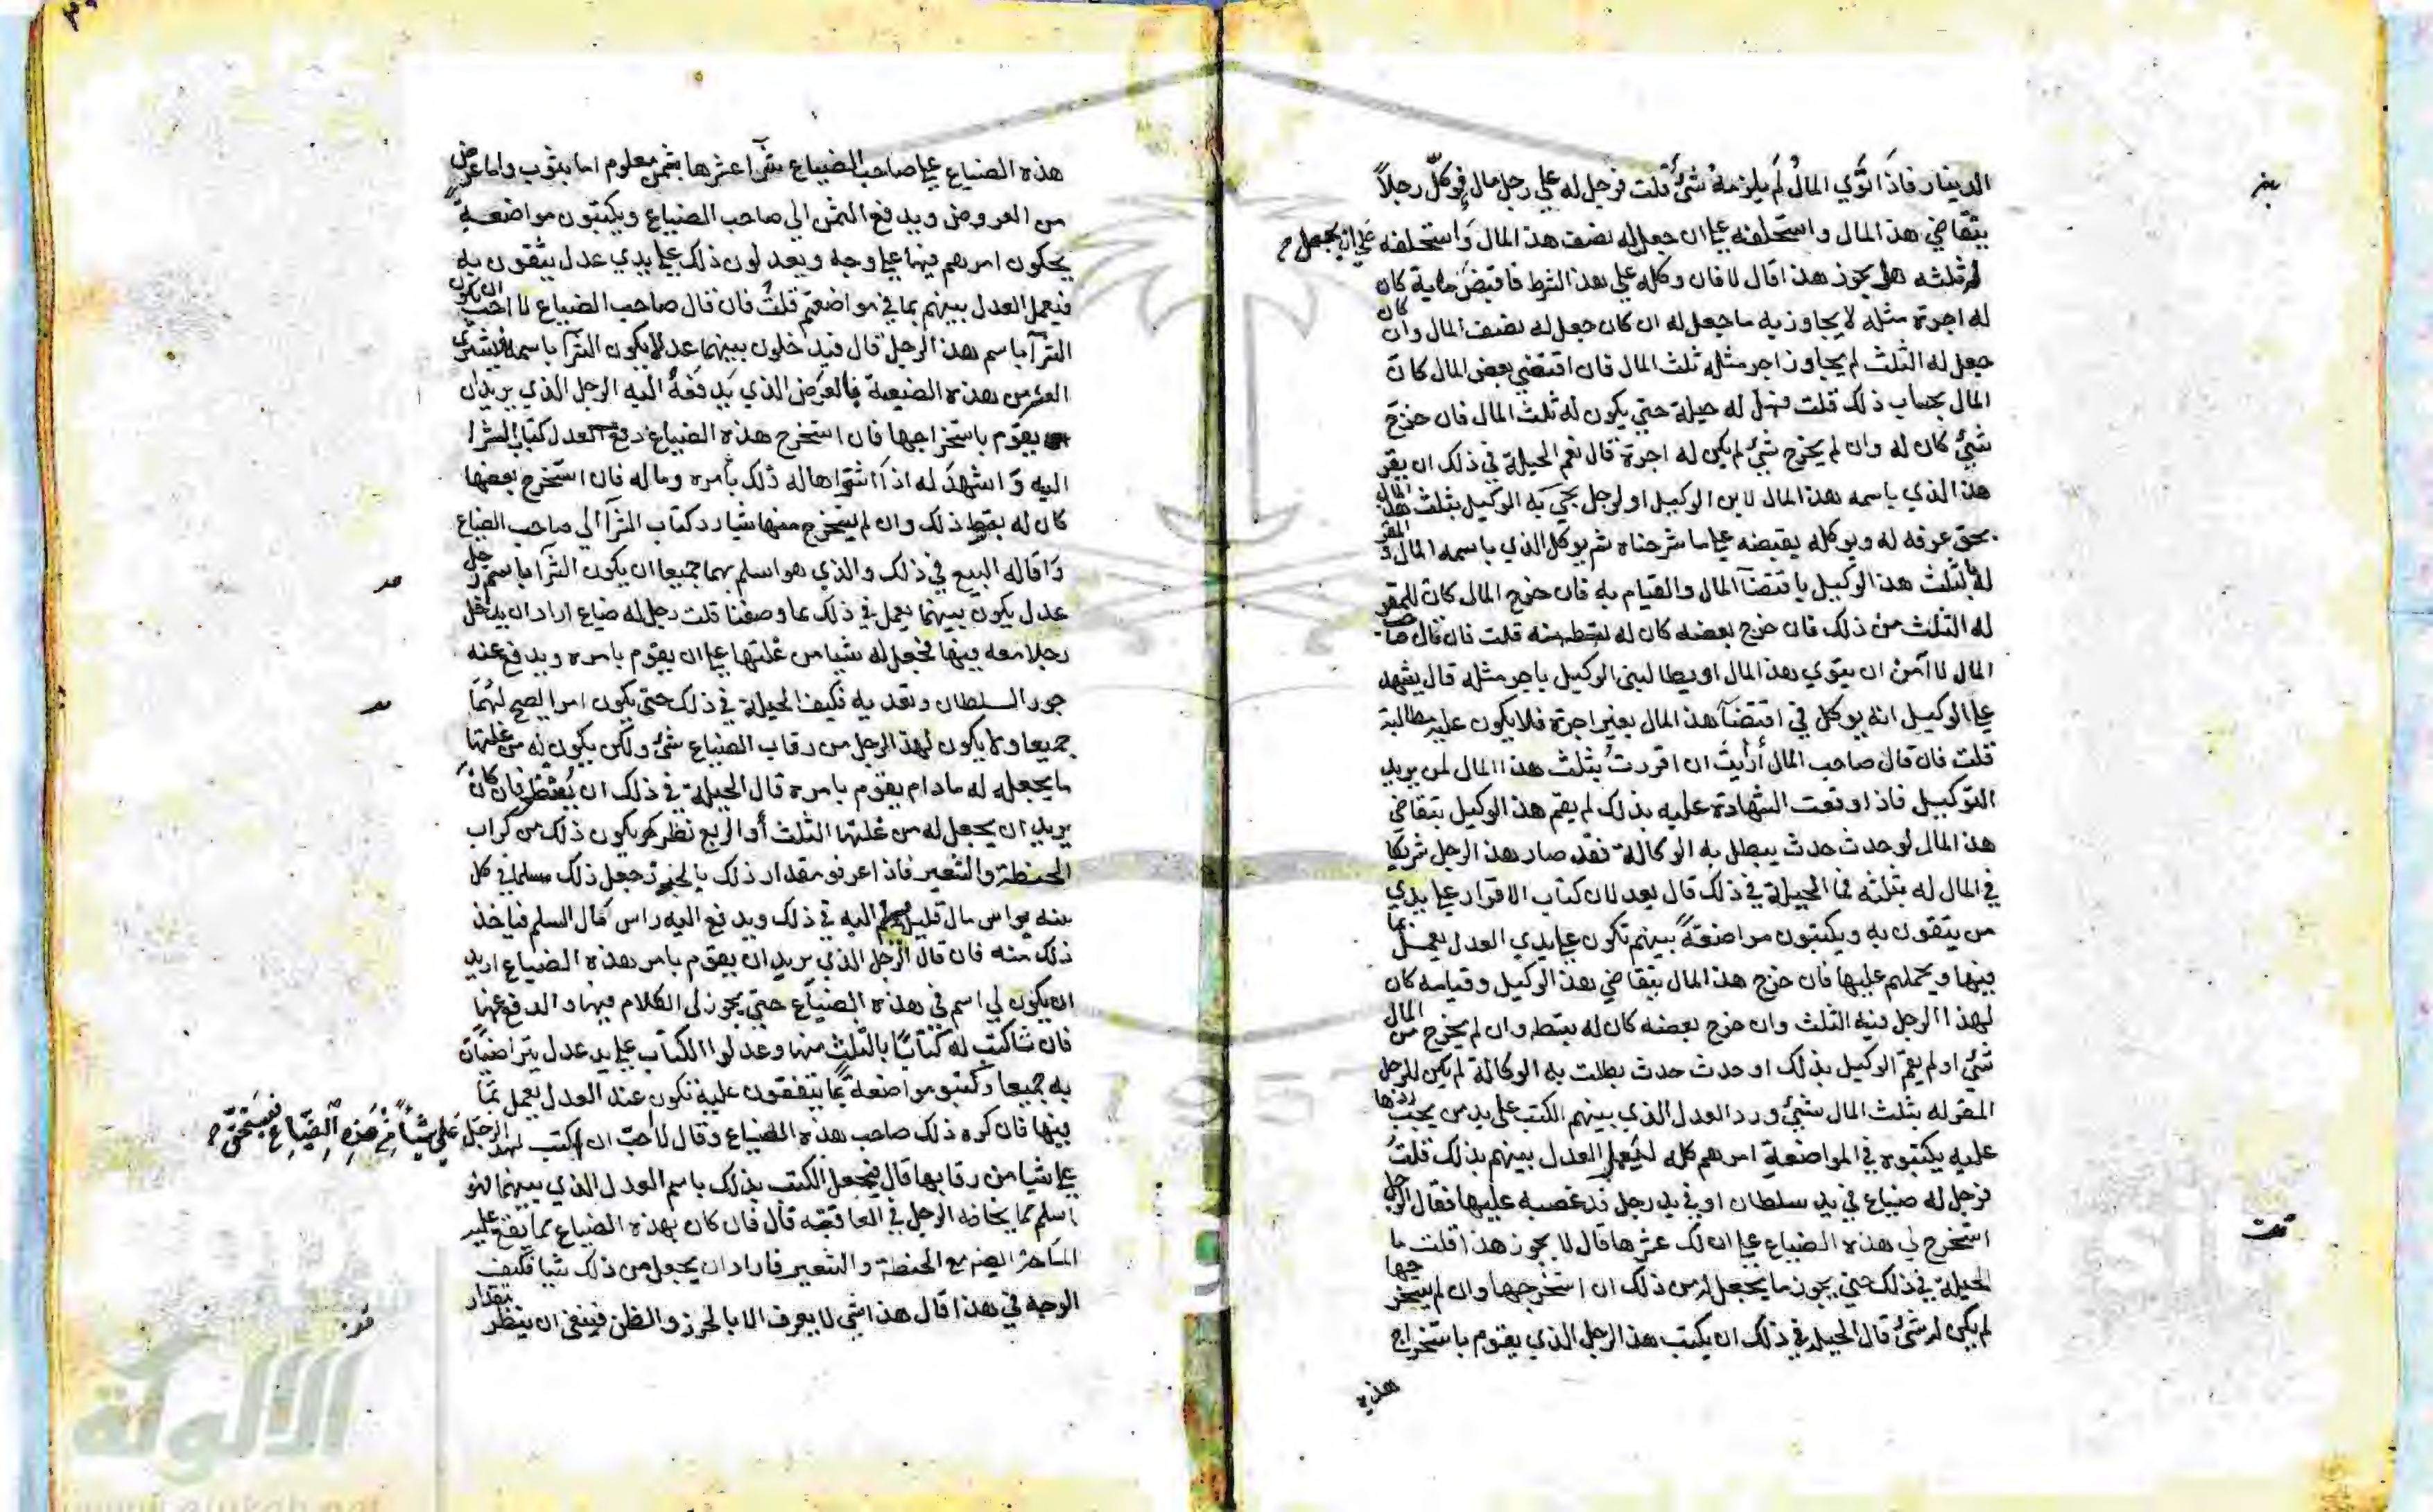 الدينار فاذا توي المال لم يلزمه شئ قلت فرجل له علي رجل مال فوكل رجلاً
يتقاضي هذا المال واستحلفه علي ان جعل له نصف هذا المال واستحلفه علي ان يجعل
له ثلثه هل يجوز هذا قال لا فان وكله علي هذا الشرط فاقبض كان
له اجرة مثله لا يجاوز به ما جعل له ان كان جعل له نصف المال وان كان
جعل له الثلث لم يجاوز اجر مثله ثلث المال فان اقتضي بعض المال كان
المال بحساب ذلك قلت فهل له حيلة حتي يكون له ثلث المال فان خرج
شئ كان له وان لم يخرج شئ لم يكن له اجرة قال نعم الحيلة في ذلك ان يقر
هذا الذي باسمه هذا المال لابن الوكيل او لرجل يجي به الوكيل بثلث هذا المال
بحق عرفه له ويوكله بقبضه علي ما شرحناه ثم يوكل الذي باسمه المال والمقر
له بالثلث هذا الوكيل باقتضآ المال والقيام به فان خرج المال كان للمقر
له الثلث من ذلك فان خرج بعضه كان له بقسطه منه قلت فان قال صاحب
المال لا آمن ان يتوي هذا المال او يطالبني الوكيل باجر مثله قال يشهد
علي الوكيل انه يوكل في اقتضآ هذا المال بغير اجرة فلا يكون عليه مطالبة
قلت فان قال صاحب المال أرأيت ان اقررت بثلث هذا المال لمن يريد
التوكيل فاذا وقعت الشهادة عليه بذلك لم يقم هذا الوكيل بتقاضي
هذا المال لو حدث حدث يبطل به الوكالة فقد صار هذا الرجل شريكا
في المال له بثلثه فما الحيلة في ذلك قال يعدلان كتاب الاقرار علي يدي
من يثقون به ويكتبون مواضعةً بينهم تكون علي يدي العدل يعمل بما
فيها ويحملهم عليها فان خرج هذا المال بتقاضي هذا الوكيل وقيامه كان
لهذا الرجل فيه الثلث وان خرج بعضه كان له بقسطه وان لم يخرج من المال
شئ او لم يقم الوكيل بذلك او حدث حدث بطلت به الوكالة لم يكن للرجل
المقر له بثلث المال شئ ورد العدل الذي بينهم الكتب علي يد من يجب ردها
عليه يكتبوه في المواضعة امرهم كله ليعمل العدل بينهم بذلك قلت
فرجل له ضياع في يد سلطان او في يد رجل قد غصبه عليها فقال الرجل
استخرج لي هذه الضياع علي ان لك عشرها قال لا يجوز هذا قلت ما
الحيلة في ذلك حتي يجوز ما يجعل له من ذلك ان استخرجها وان لم يستخرجها
لم يكن له شئ قال الحيلة في ذلك ان يكتب هذا الرجل الذي يقوم باستخراج
هذه
هذه الضياع علي صاحب الضياع شرآ عشرها بثمن معلوم اما بثوب واما عرض
من العروض ويدفع الثمن الي صاحب الضياع ويكتبون مواضعةً
يحكون امرهم فيها علي وجه ويعدلون ذلك علي يدي عدل يثقون به
فيعمل العدل بينهم بما في مواضعتهم قلت فان قال صاحب الضياع لا احب ان يكون
الشرآ باسم هذا الرجل قال فيدخلون بينهما عدلا يكون الشرآ باسمه فيشتري
العشر من هذه الضيعة بالعرض الذي يدفعه اليه الرجل الذي يريد ان
يقوم باستخراجها فان استخرج هذه الضياع دفع العدل كتاب الشرا
اليه واشهد له اذا اشتراها له ذلك بأمره وماله فان استخرج بعضها
كان له بقسط ذلك وان لم يستخرج منها شيا رد كتاب الشرآ الي صاحب الضياع
واقاله البيع في ذلك والذي هو اسلم بهما جميعا ان يكون الشرآ باسم رجل
عدل يكون بينهما يعمل في ذلك بما وصفنا قلت رجل له ضياع اراد ان يدخل
رجلا معه فيها فجعل له شيا من غلتها علي ان يقوم بامره ويدفع عنه
جور السلطان وتعديه فكيف الحيلة في ذلك حتي يكون امرا يصح لهما
جميعا ولا يكون لهذا الرجل من رقاب الضياع شئ ولكن يكون له من غلتها
ما يجعله له ما دام يقوم بامره قال الحيلة في ذلك ان ينظر فان كان
يريد ان يجعل له من غلتها الثلث أو الربع نظر كم يكون ذلك من
الحنطة والشعير فاذا عرفو مقدار ذلك جعل ذلك سلما في كل
سنه براس مال قليل يسلم اليه في ذلك ويدفع اليه راس مال السلم فياخذ
ذلك منه فان قال الرجل الذي يريد ان يقوم بامر هذه الضياع اريد
ان يكون لي اسم في هذه الضياع حتي يجوز لي الكلام فيها والدفع عنها
فان شا كتب له كتابًا بالثلث منها وعدلوا الكتاب علي يد عدل يتراضيان
به جميعا وكتبو مواضعةً بما يتفقون عليه تكون عند العدل يعمل بما
فيها فان كره ذلك صاحب هذه الضياع وقال لا احب ان اكتب لهذا الرجل علي شيأ من هذه الضياع فيستحق
علي شيا من رقابها قال فيجعل الكتب بذلك باسم العدل الذي بينهما فهو
اسلم مما يخافه الرجل في العاقبة قال فان كان بهذه الضياع مما يقع عليه
ايضا مع الحنطة والشعير فاراد ان يجعل من ذلك شيا فكيف
الوجه في هذا قال هذا شئ لا يعرف الا بالحرز والظن فينبغي ان ينظر مقدار